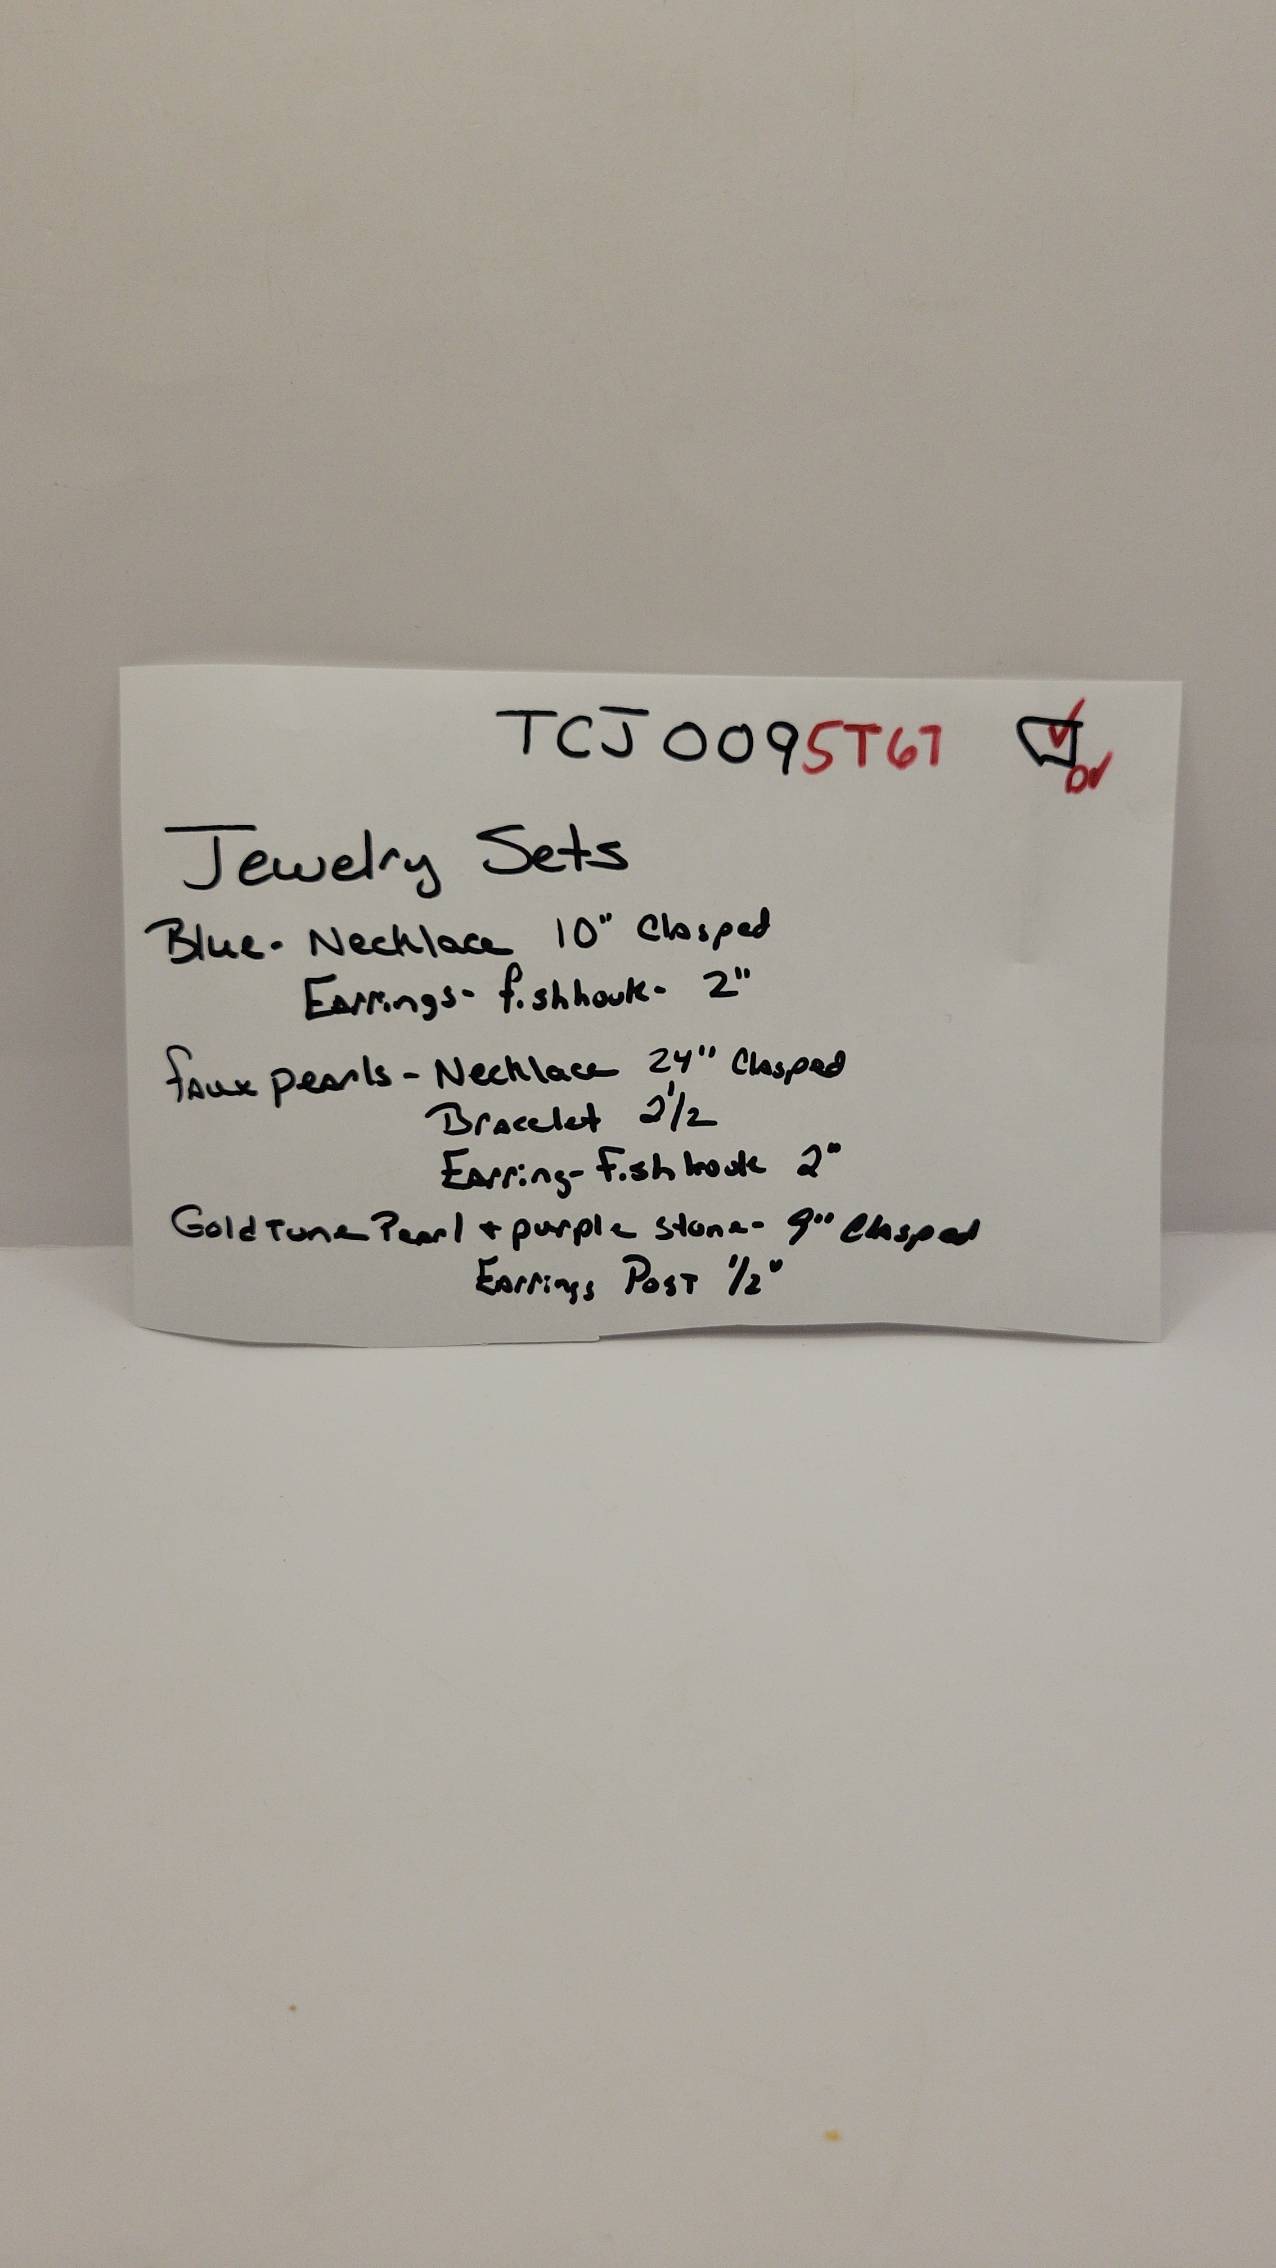 TCJ0095T67
Jewelry Sets
Blue- Necklace 10" Clasped
Earrings- fishhook- 2"
faux pearls - Necklace 24" Clasped
Bracelet 2 1/2
Earring- Fishhook 2"
Goldtone Pearl + purple stone- 9" Clasped
Earrings Post 1/2"